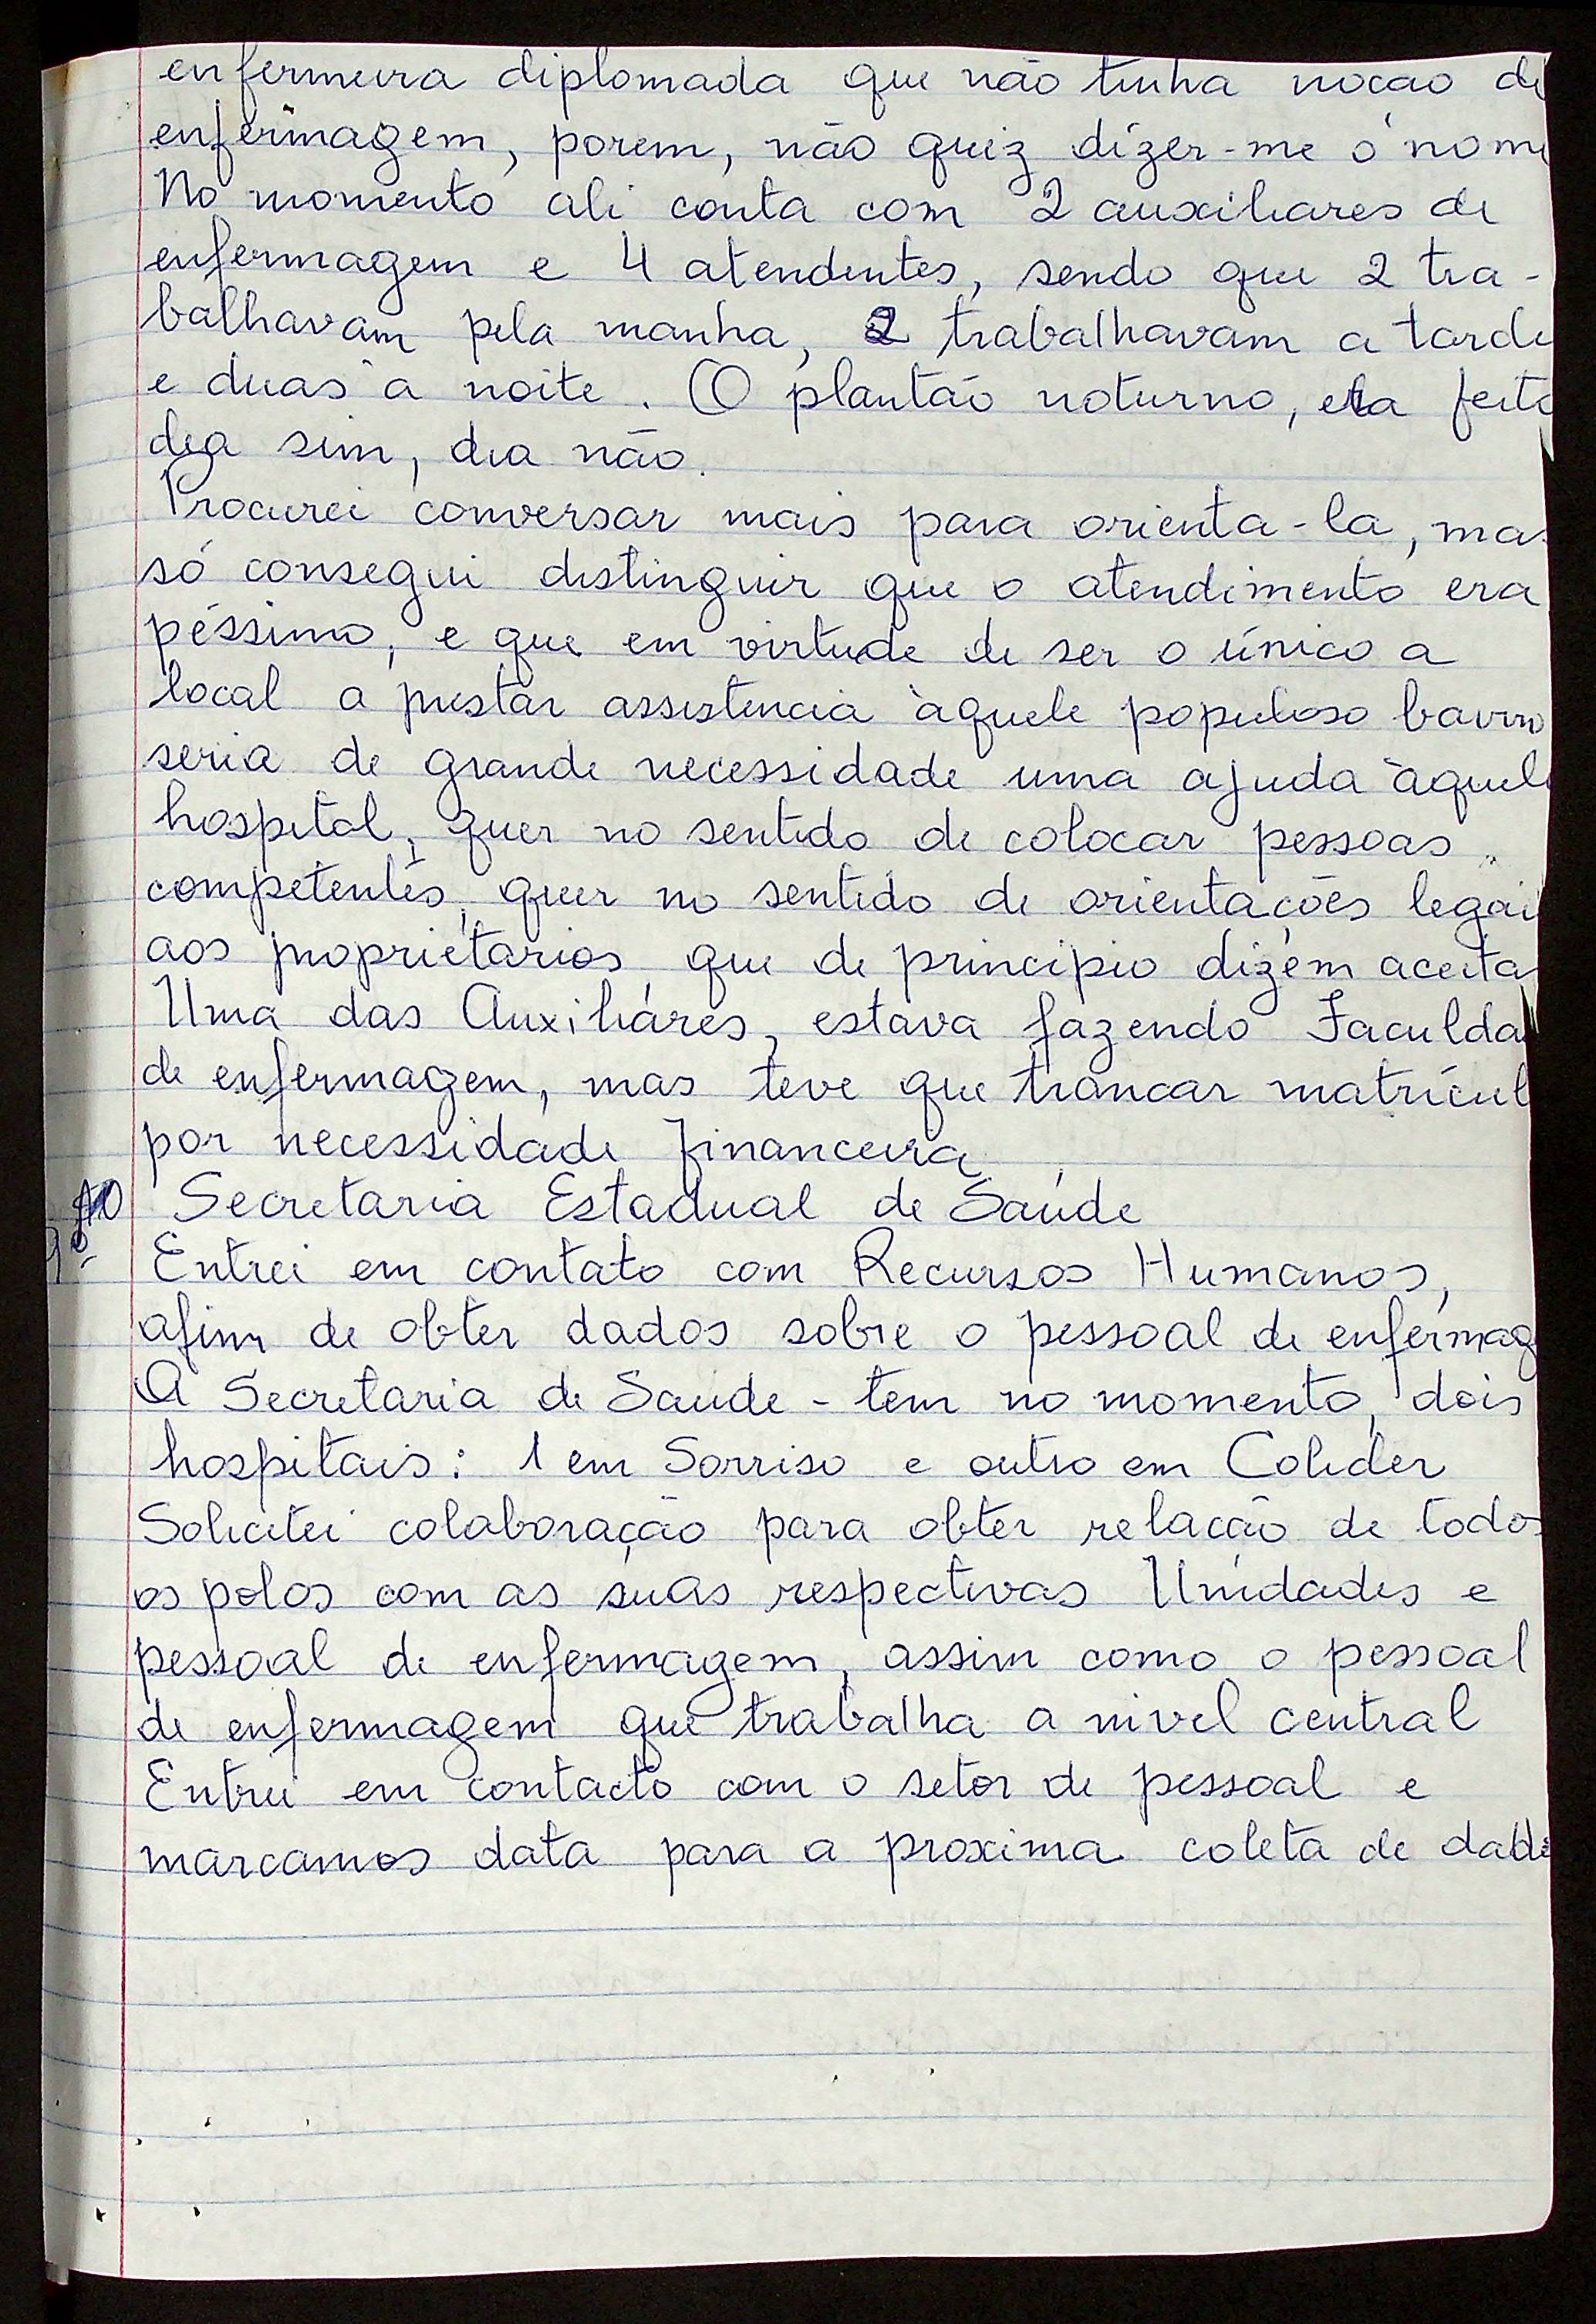 enfermeira diplomada que não tinha nocao de
enfermagem, porem, não quiz dizer-me o nome
No momento ali conta com 2 auxiliares de
enfermagem e 4 atendentes, sendo que 2 tra-
balhavam pela manha, 2 trabalhavam a tarde
e duas a noite. O plantão noturno, era feito
dia sim, dia não.
Procurei conversar mais para orienta-la, mas
só consegui distinguir que o atendimento era
péssimo, e que em virtude de ser o único a
local a prestar assistencia àquele populoso bairro
seria de grande necessidade uma ajuda àquele
hospital, quer no sentido de colocar pessoas
competentes, quer no sentido de orientações legais
aos proprietarios, que de principio dizem aceitar
Uma das Auxiliares, estava fazendo Faculda
de enfermagem, mas teve que trancar matrícul
por necessidade financeira.
Secretaria Estadual de Saúde
9º- Entrei em contato com Recursos Humanos,
afim de obter dados sobre o pessoal de enfermag
A Secretaria de Saude - tem no momento, dois
hospitais: 1 em Sorriso e outro em Colider
Solicitei colaboração para obter relacão de todos
os polos com as suas respectivas Unidades e
pessoal de enfermagem, assim como o pessoal
de enfermagem que trabalha a nivel central
Entrei em contacto com o setor de pessoal e
marcamos data para a proxima coleta de dados